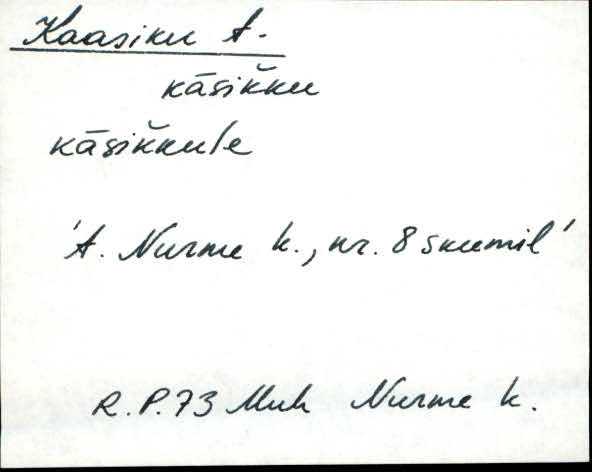 Kaasiku A.
kāsik̆ku
kāsik̆kule
'A. Nurme k., nr. 8 skeemil'
R. P. 73 Muh Nurme k.